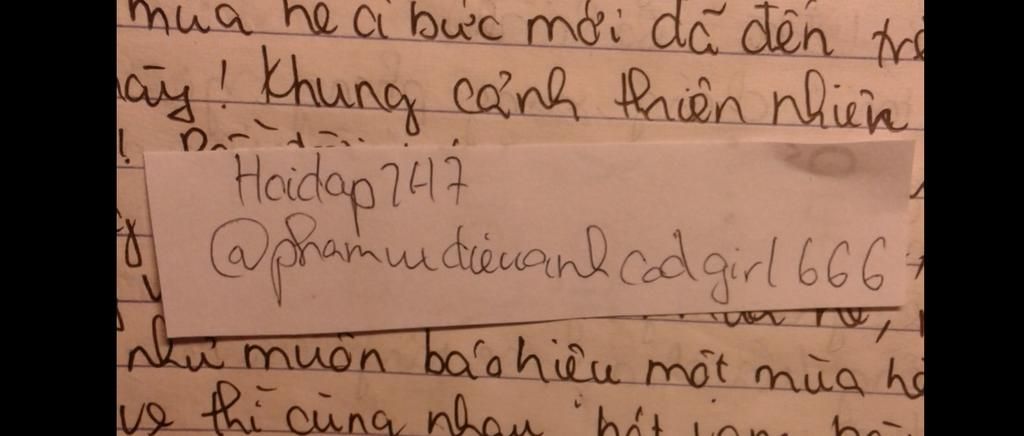 mùa hè ci bức mới đã đến
này! Khung cảnh thiên nhiên
!
Hoidap247
@phamvudieuanhcodgirl666
như muốn báo hiệu một mùa
ve thì cùng nhau hát